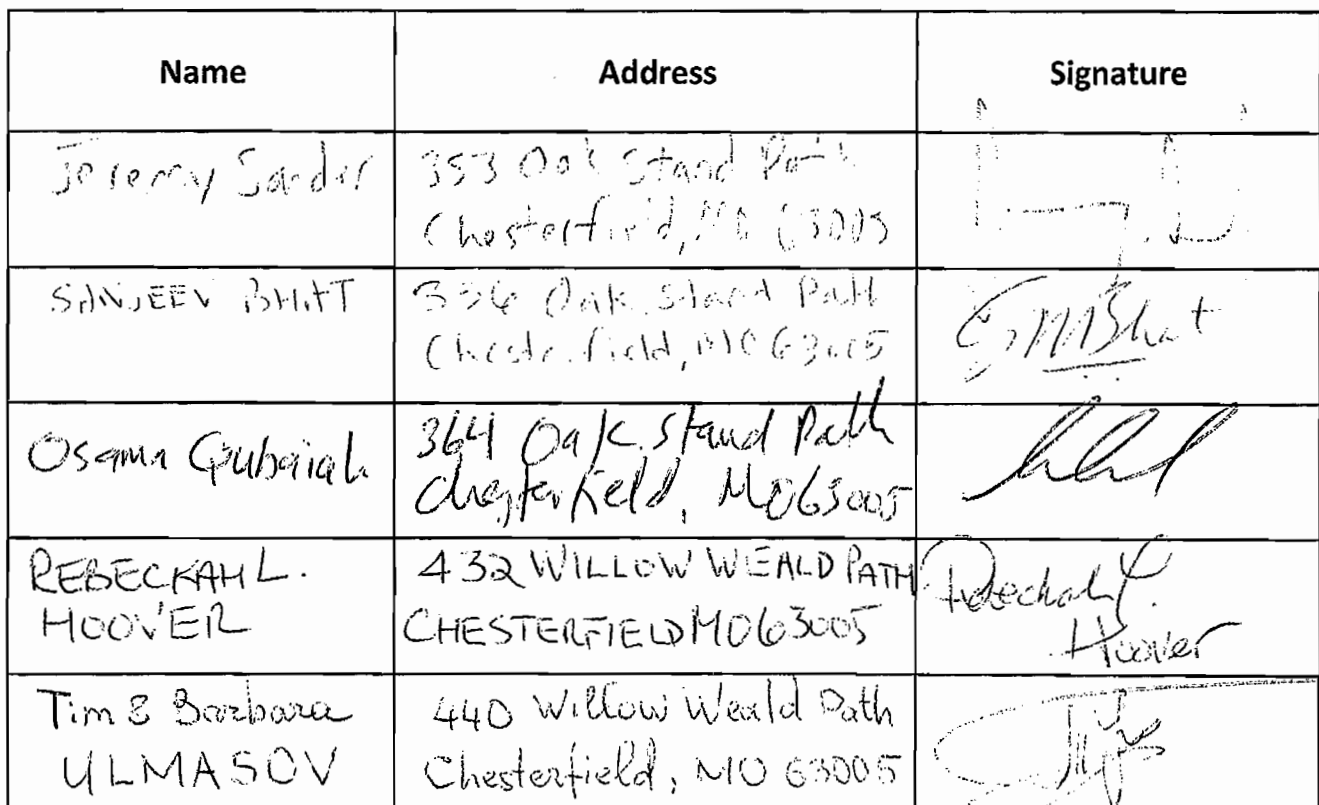 Name Address Signature
Jeremy Sander 353 Oak Stand Path
Chesterfield, MO 63005
SANJEEV BHAT 336 Oak Stand Path
Chesterfield, MO 63005 SMBhat
Osama Qubaiah 364 Oak Stand Path
Chesterfield, MO 63005
REBECKAH L. 432 WILLOW WEALD PATH Rebeckah L.
HOOVER CHESTERFIELD MO 63005 Hoover
Tim & Barbara 440 Willow Weald Path
ULMASOV Chesterfield, MO 63005